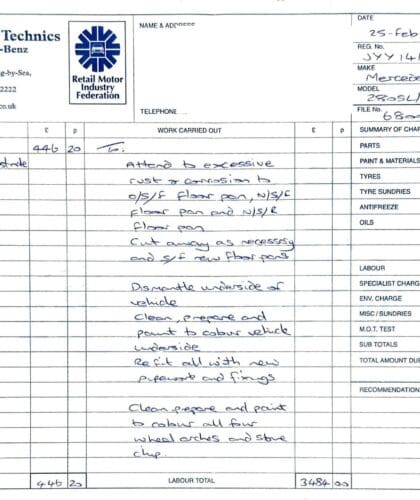 Technics
-Benz
g-by-Sea,
2222
co.uk
Retail Motor
Industry
Federation
NAME & ADDRESS
TELEPHONE
DATE
25-Feb
REG. No.
JYY 141
MAKE
Mercede
MODEL
280SL/
FILE No
680
£ p WORK CARRIED OUT £ p SUMMARY OF CHAR
446 20 To. PARTS
Attend to excessive PAINT & MATERIALS
rust & corrosion to TYRES
O/S/F floor pan, N/S/F TYRE SUNDRIES
floor pan and N/S/R ANTIFREEZE
floor pan OILS
Cut away as necessary
and S/F new floor pans
LABOUR
Dismantle underside of SPECIALIST CHARG
vehicle ENV. CHARGE
Clean, prepare and MISC / SUNDRIES
paint to colour vehicle M.O.T. TEST
underside SUB TOTALS
Refit all with new TOTAL AMOUNT DUE
pipework and fixings
RECOMMENDATION
Clean, prepare and paint
to colour all four
wheel arches and stone
chip.
446 20 LABOUR TOTAL 3484 00